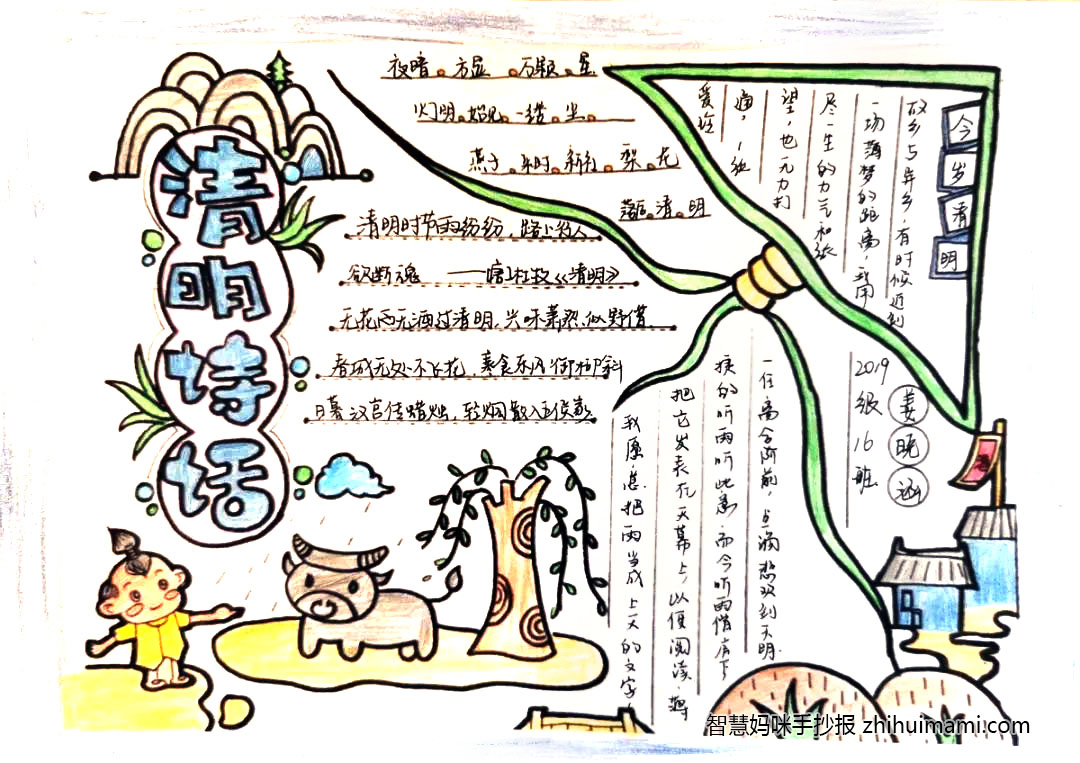 清明诗话
夜暗方显万颗星
灯明始见一缕尘
燕子来时新社梨花
落后清明
清明时节雨纷纷，路上行人
欲断魂 ——唐杜牧《清明》
无花无酒过清明，兴味萧然似野僧
春城无处不飞花，寒食东风御柳斜
日暮汉宫传蜡烛，轻烟散入五侯家
今岁清明
故乡与异乡，有时候近到
一场薄梦的距离，我用
尽一生的力气和
望，也无力打
通，一
2019级16班
姜晓涵
一任 阶前，点滴 到天明
的听雨听 而今听雨僧庐下
把它发表在天幕上，以便阅读，
我愿意把雨当成上天的文字，
智慧妈咪手抄报 zhihuimami.com